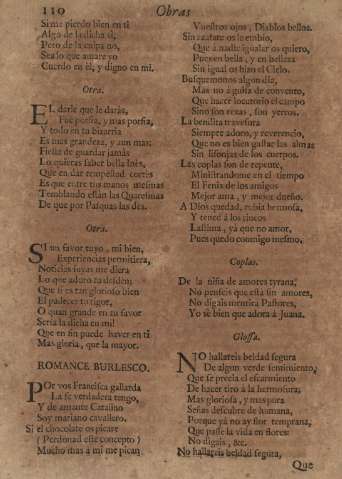 110
Obras
Si me pierdo bien en ti
Algo de la dicha si,
Pero de la culpa no,
Sea lo que amare yo
Cuerdo en èl, y digno en mi.
Otra.
EL darle que le daràs,
Fue porfia, y mas porfia,
Y todo en tu bizarria
Es mas grandeza, y aun mas:
Fiesta de guardar jamàs
Lo quieras saber bella Inès,
Que en dar tempestad cortès
Es que entre tus manos mesmas
Temblando estàn las Quaresmas
De que por Pasquas las des.
Otra.
SI un favor tuyo, mi bien,
Experiencias permitiera,
Noticias suyas me diera
Lo que adoro tu desden;
Que si es tan glorioso bien
El padecer tu rigor,
O quan grande en tu favor
Seria la dicha en mi!
Que en fin puede haver en ti
Mas gloria, que la mayor.
ROMANCE BURLESCO.
POr vos Francisca gallarda
La fe verdadera tengo,
Y de amante Catalino
Soy mariano cavallero.
Si el chocolate os picare
(Perdonad este concepto)
Mucho mas à mi me pican
Vuestros ojos, Diablos bellos.
Sin azafate os lo embio,
Que à nadie igualar os quiero,
Pues en bella, y en belleza
Sin igual os hizo el Cielo.
Busquemonos algun dia,
Mas no à gusto de convento,
Que hacer locutorio el campo
Sino son rexas, son yerros.
La bendita travesura
Siempre adoro, y reverencio,
Que no es bien gastar las almas
Sin lisonjas de los cuerpos.
Las coplas son de repente,
Ministrandome en el tiempo
El Fenix de los amigos
Mejor ama, y mejor dueño.
A Dios quedad, rubia hermosa,
Y tened à los cincos
Lastima, ya que no amor,
Pues quedo conmigo mesmo.
Coplas.
De la niña de amores tyrana,
No penseis que està sin amores,
No digais mentira Pastores,
Yo sè bien que adora à Juana.
Glossa.
NO hallareis beldad segura
De algun verde sentimiento,
Que se precia el escarmiento
De hacer tiro à la hermosura;
Mas gloriosa, y mas pura
Señas descubre de humana,
Porque yà no ay flor temprana,
Que passe la vida en flores:
No digais, &c.
No hallareis beldad segura,
Que